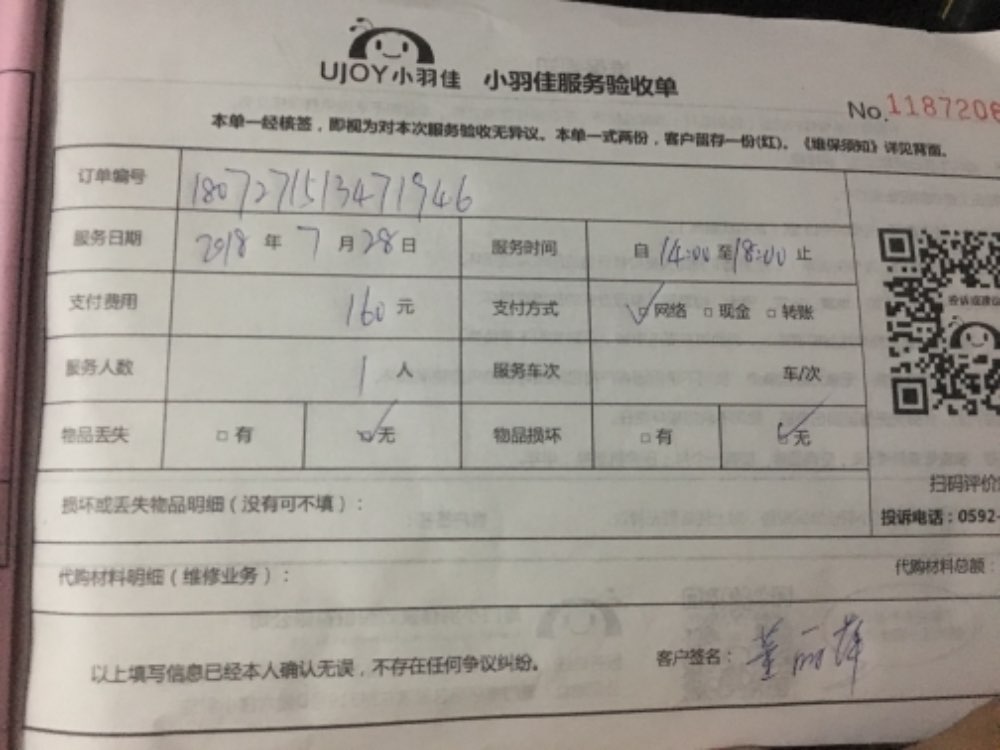 UJOY小羽佳 小羽佳服务验收单
No.1187206
本单一经核签，即视为对本次服务验收无异议。本单一式两份，客户留存一份(红)。《维保须知》详见背面。
订单编号 1807271513471946
服务日期 2018 年 7 月 28 日 服务时间 自 14:00 至 18:00 止
支付费用 160 元 支付方式 ☑网络 □现金 □转账
投诉或建议
服务人数 1 人 服务车次 车/次
物品丢失 □有 ☑无 物品损坏 □有 ☑无
扫码评价
损坏或丢失物品明细（没有可不填）：
投诉电话：0592-
代购材料明细（维修业务）： 代购材料总额：
以上填写信息已经本人确认无误，不存在任何争议纠纷。 客户签名：董丽